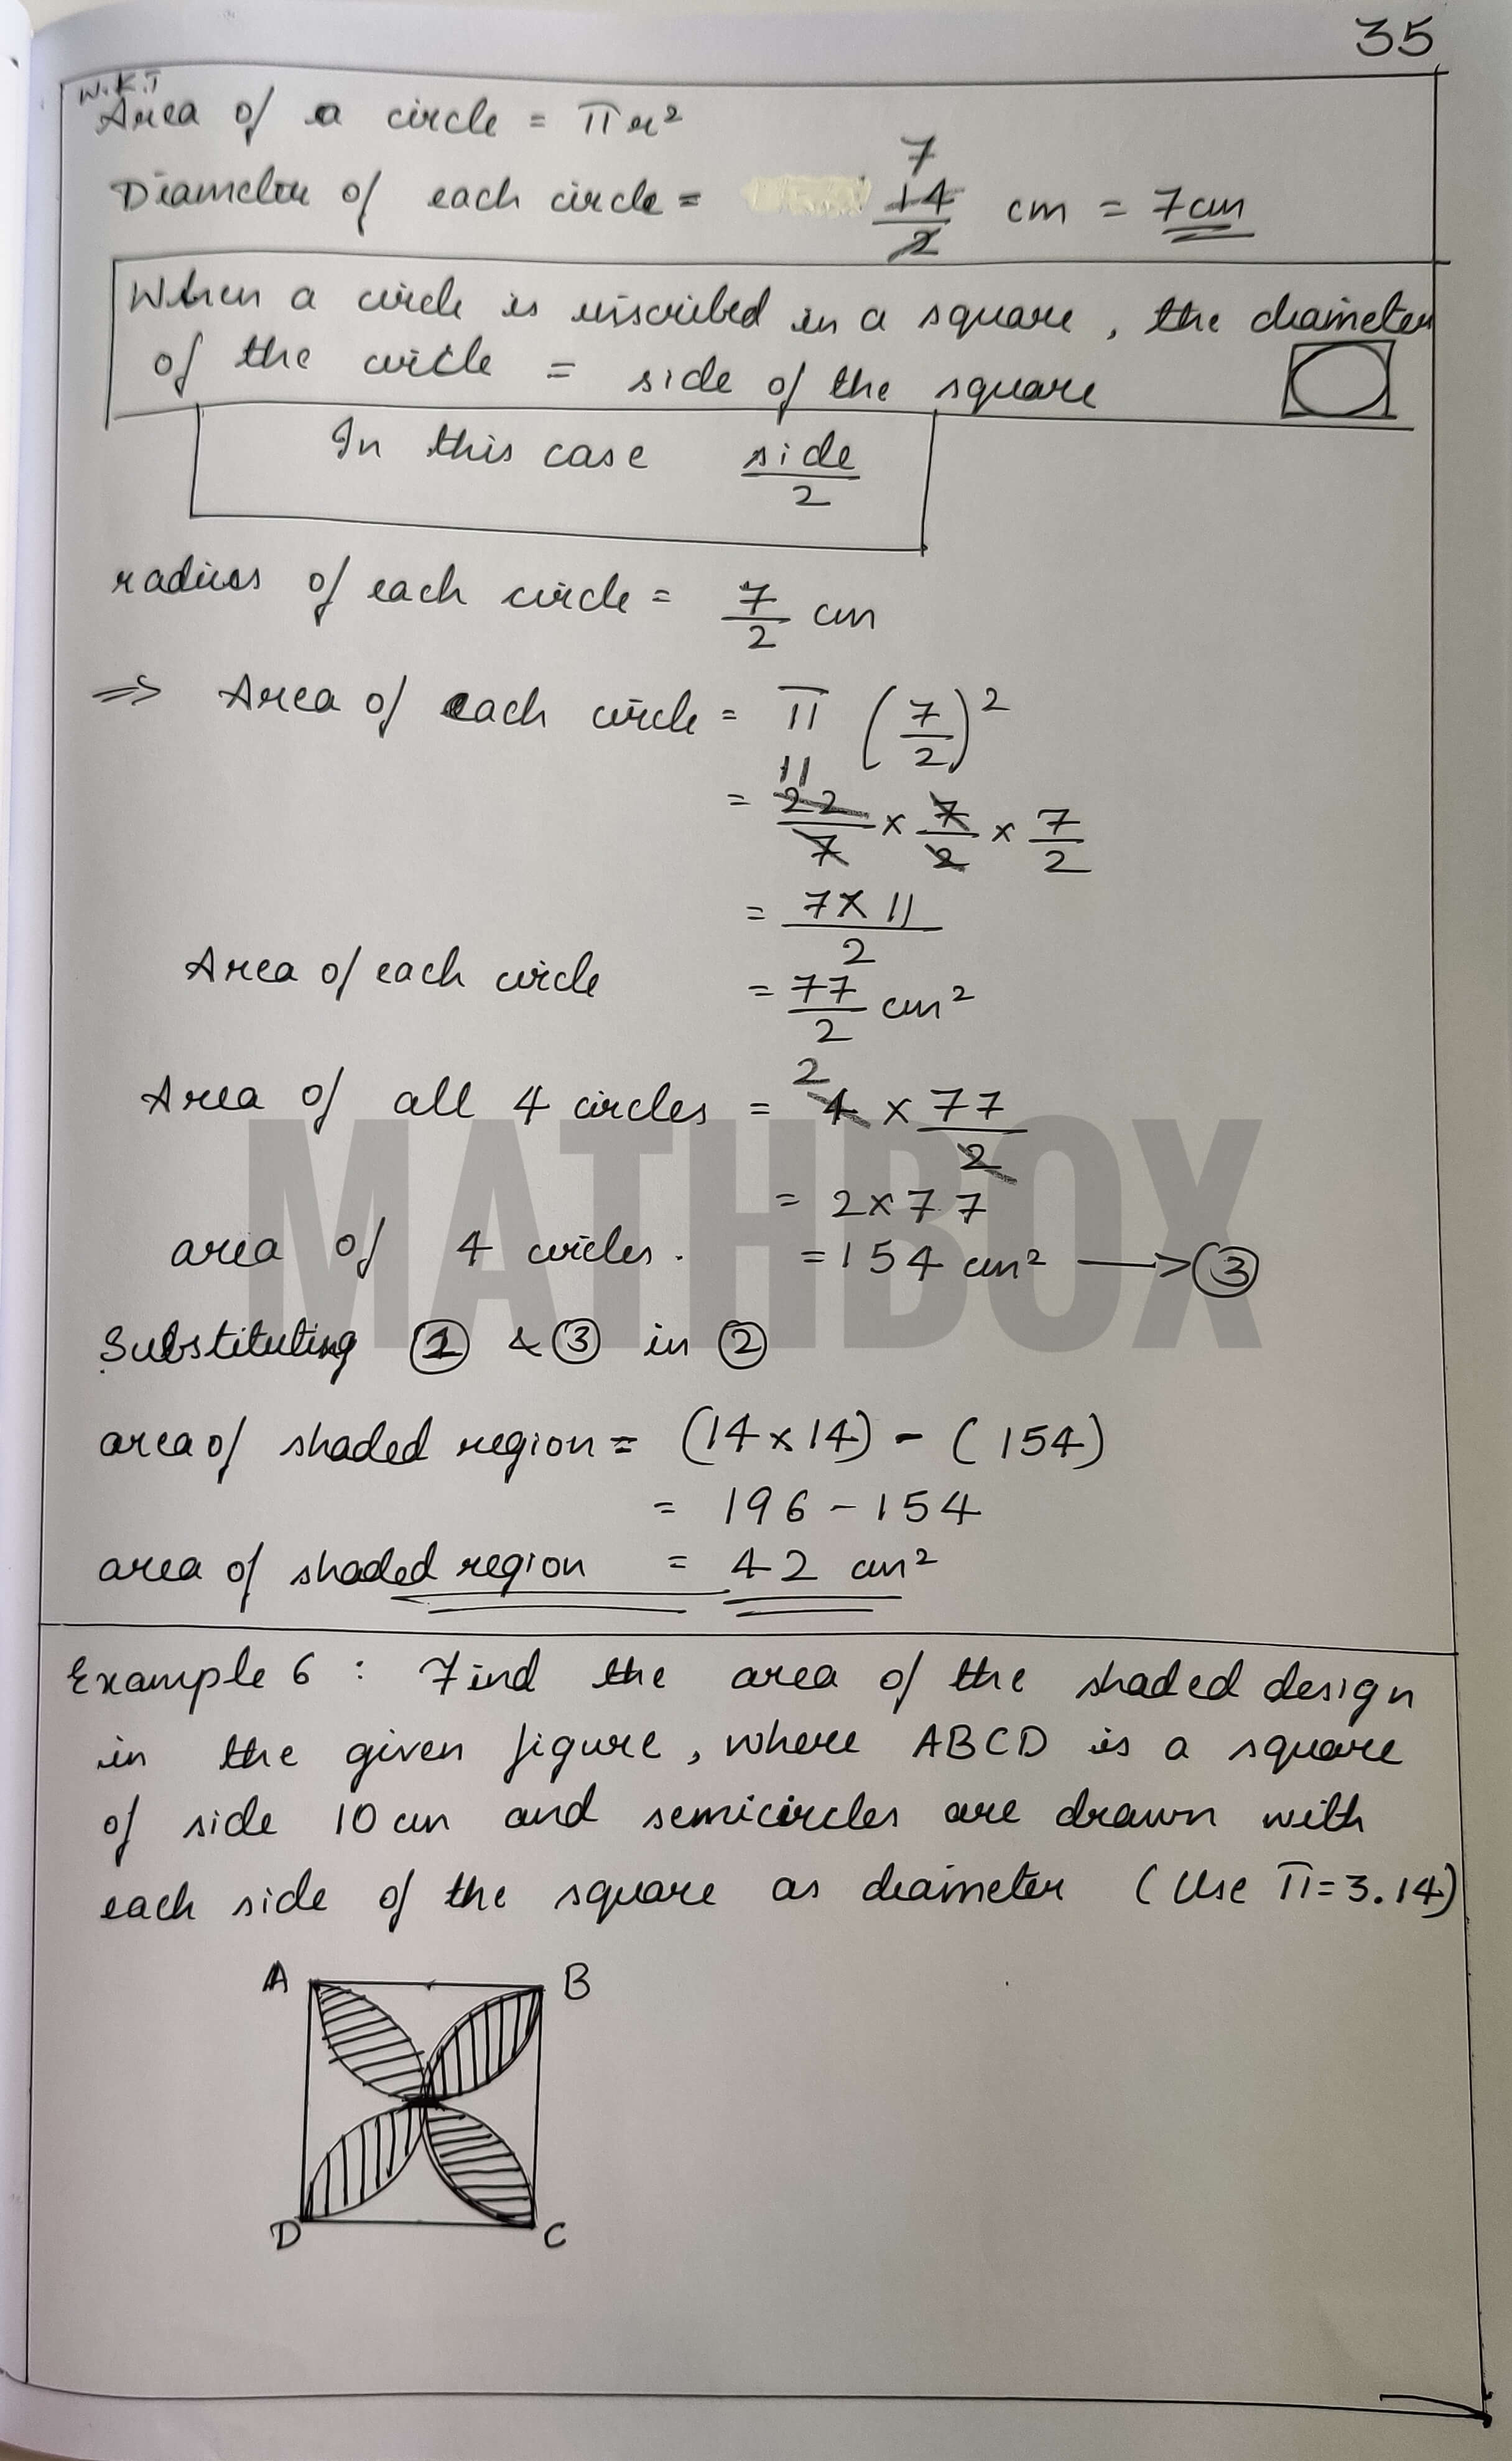 35
W.K.T
Area of a circle = πr²
Diameter of each circle = 14/2 cm = 7cm
7
When a circle is inscribed in a square, the diameter
of the circle = side of the square
In this case side/2
radius of each circle = 7/2 cm
⇒ Area of each circle = π (7/2)²
11
= 22/7 × 7/2 × 7/2
= 7×11/2
Area of each circle = 77/2 cm²
2
Area of all 4 circles = 4 × 77/2
= 2×77
area of 4 circles. = 154 cm² → ③
Substituting ① & ③ in ②
area of shaded region = (14×14) - (154)
= 196 - 154
area of shaded region = 42 cm²
Example 6 : Find the area of the shaded design
in the given figure, where ABCD is a square
of side 10 cm and semicircles are drawn with
each side of the square as diameter (Use π=3.14)
A B
D C
MATHBOX